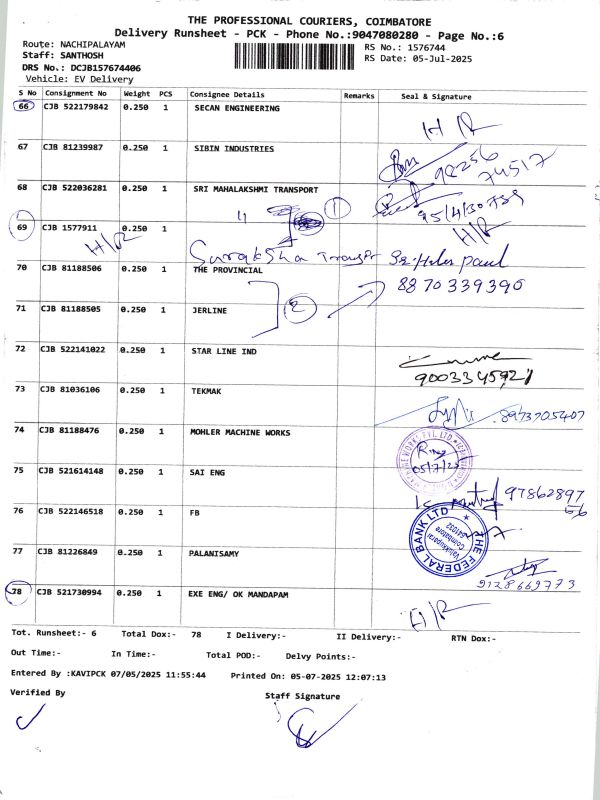 THE PROFESSIONAL COURIERS, COIMBATORE
Delivery Runsheet - PCK - Phone No.:9047080280 - Page No.:6
Route: NACHIPALAYAM
RS No.: 1576744
Staff: SANTHOSH
RS Date: 05-Jul-2025
DRS No.: DCJB157674406
Vehicle: EV Delivery
S No Consignment No Weight PCS Consignee Details Remarks Seal & Signature
66 CJB 522179842 0.250 1 SECAN ENGINEERING
H/R
67 CJB 81239987 0.250 1 SIBIN INDUSTRIES
98256
74517
68 CJB 522036281 0.250 1 SRI MAHALAKSHMI TRANSPORT
" 1
H/R
69 CJB 1577911 0.250 1
H/R
Suraksha Transpt
paul
70 CJB 81188506 0.250 1 THE PROVINCIAL
8870339390
71 CJB 81188505 0.250 1 JERLINE
2
72 CJB 522141022 0.250 1 STAR LINE IND
73 CJB 81036106 0.250 1 TEKMAK
8973705407
74 CJB 81188476 0.250 1 MOHLER MACHINE WORKS
05/7/25
75 CJB 521614148 0.250 1 SAI ENG
97862897
56
76 CJB 522146518 0.250 1 FB
THE FEDERAL BANK LTD
Coimbatore
641032
77 CJB 81226849 0.250 1 PALANISAMY
9128669773
78 CJB 521730994 0.250 1 EXE ENG/ OK MANDAPAM
H/R
Tot. Runsheet:- 6 Total Dox:- 78 I Delivery:- II Delivery:- RTN Dox:-
Out Time:- In Time:- Total POD:- Delvy Points:-
Entered By :KAVIPCK 07/05/2025 11:55:44 Printed On: 05-07-2025 12:07:13
Verified By Staff Signature